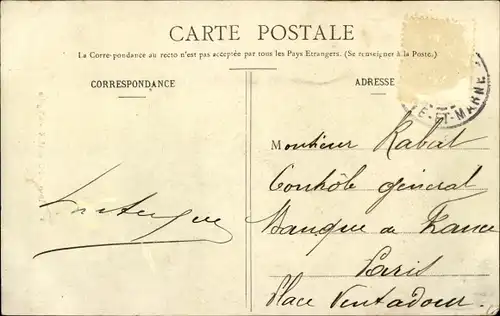 CARTE POSTALE
La Corre·pondance au recto n'est pas acceptée par tous les Pays Etrangers. (Se renseigner à la Poste.)
CORRESPONDANCE
ADRESSE
E-ET-MARNE
Monsieur Rabat
Contrôle général
Banque de France
Paris
Place Ventadour.